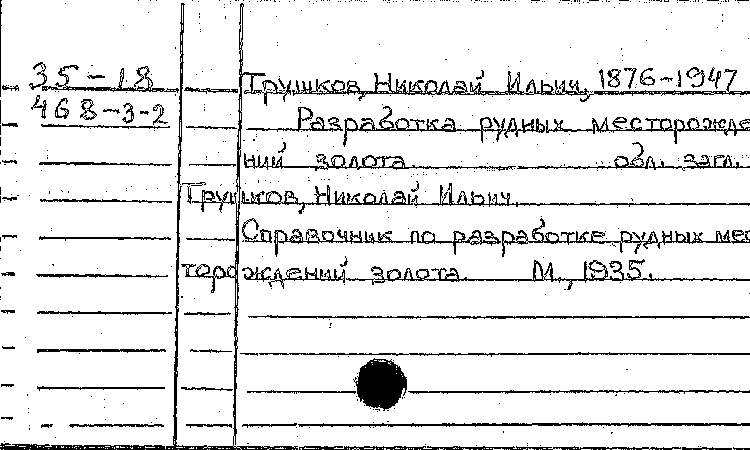 35-18
468-3-2
Трушков, Николай Ильич, 1876-1947
Разработка рудных месторожде
ний золота. обл. загл.
Трушков, Николай Ильич.
Справочник по разработке рудных мес
торождений золота. М., 1935.